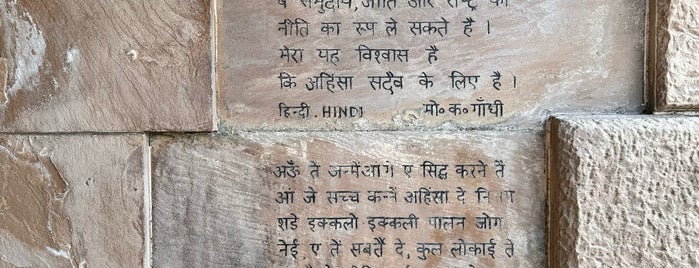 वे समुदाय, जाति और राष्ट्र की
नीति का रूप ले सकते है ।
मेरा यह विश्वास है
कि अहिंसा सदैव के लिए है ।
हिन्दी. HINDI मो॰ क॰ गाँधी
अऊँ ते जन्मेंआगे ए सिद्ध करने तै
आं जे सच्च कन्नै अहिंसा दे नियम
शडे इक्कलो इक्कली पालन जोग
नेईं, ए तें सबतैं दे, कुल लोकाई ते